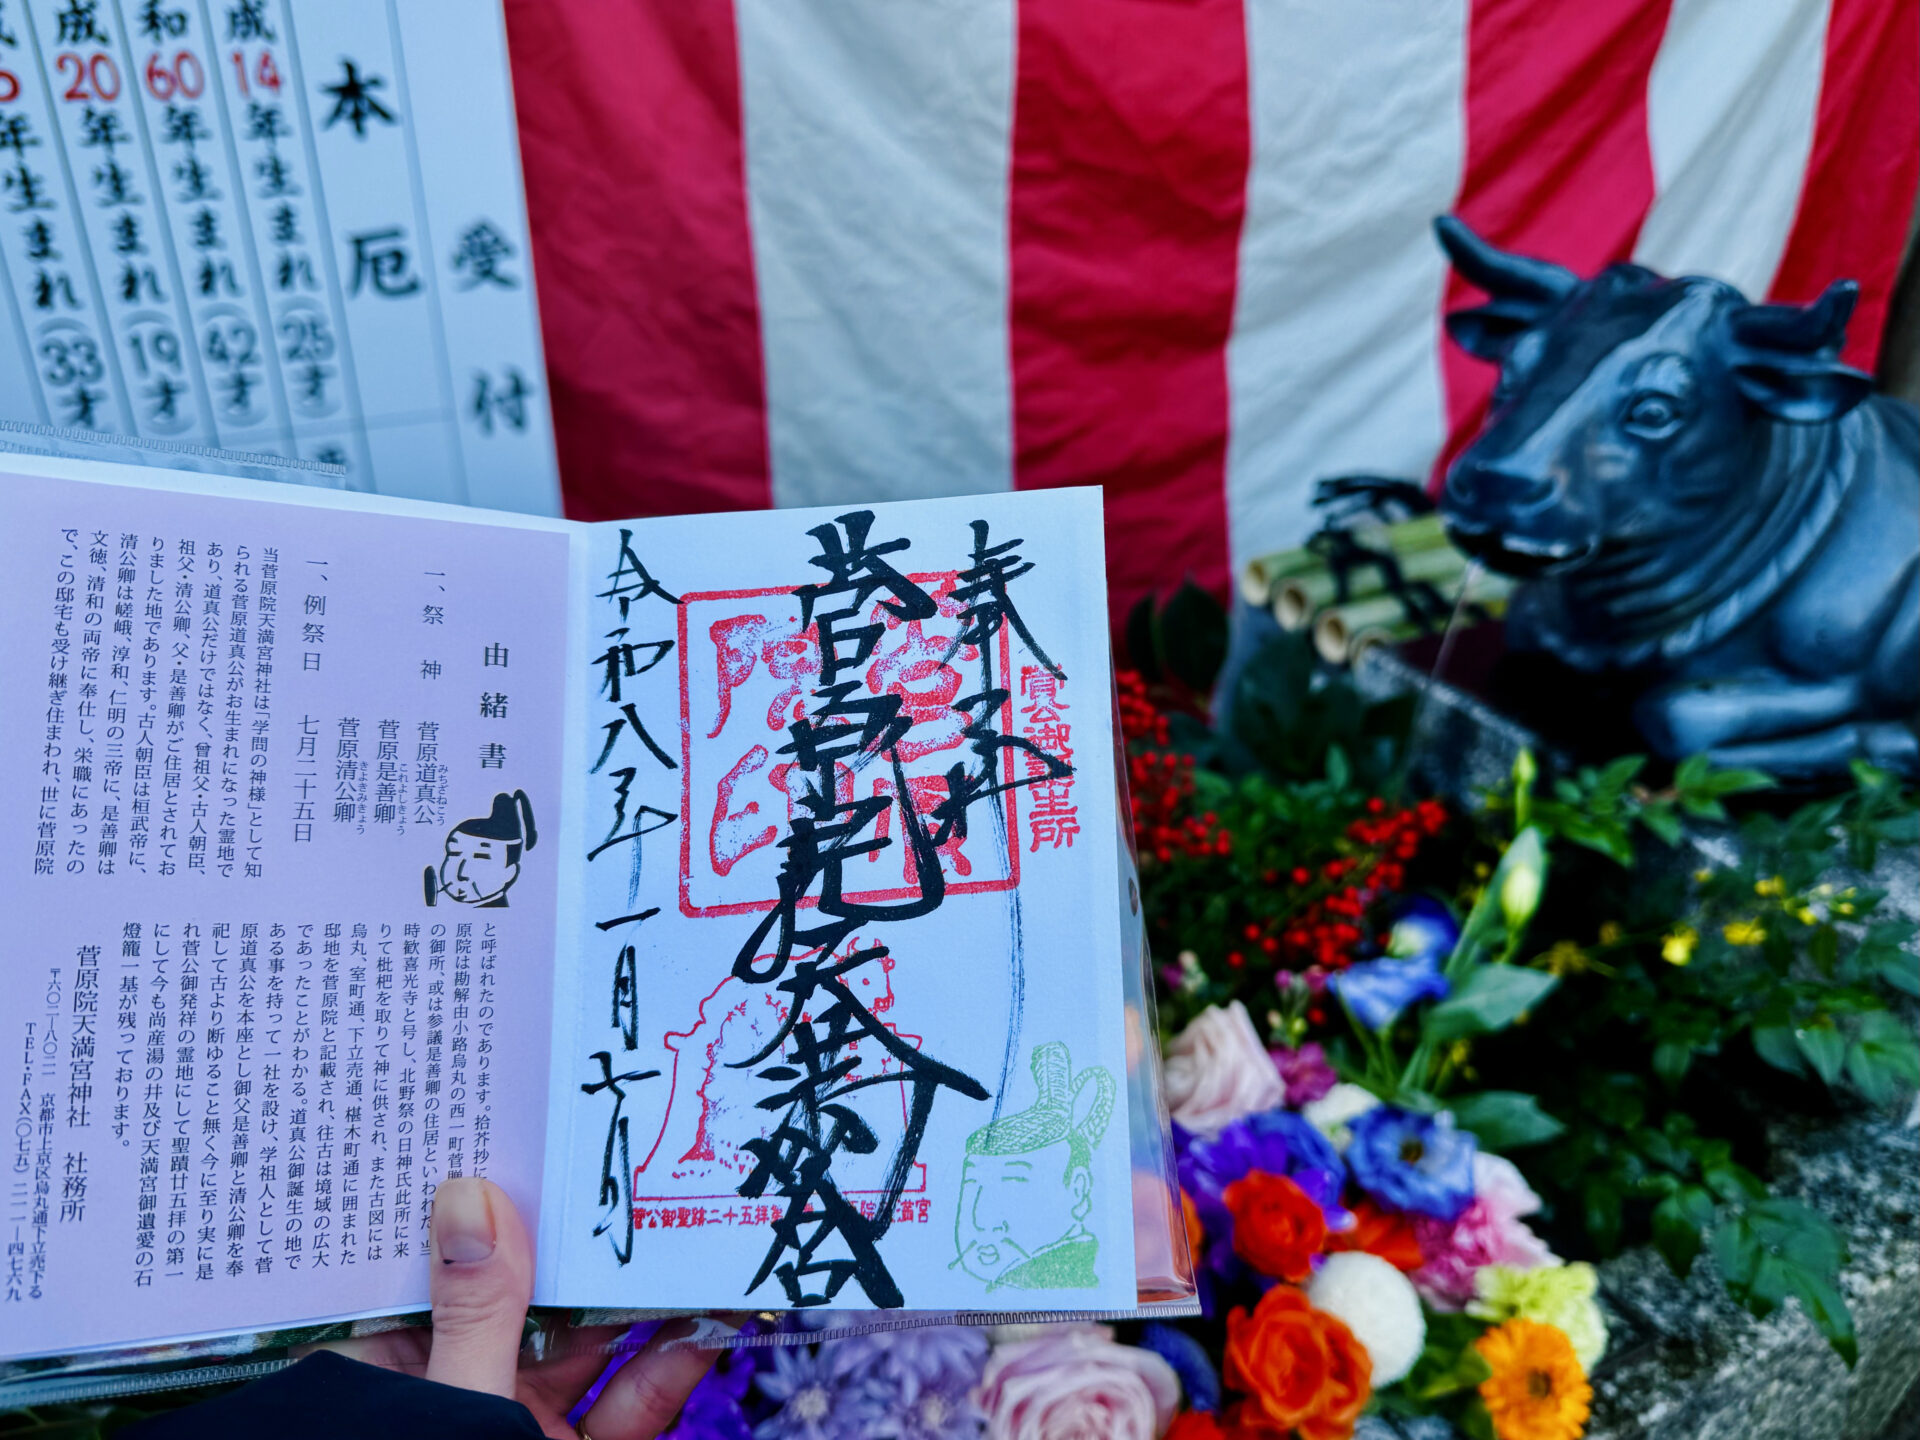 受付
本厄
成14年生まれ(25才)
和60年生まれ(42才)
成20年生まれ(19才)
年生まれ(33才)
奉拝
菅公御誕生所
菅原院天満宮
令和八年一月七日
菅公御聖跡二十五拝第
院天満宮
由緒書
一、祭神 菅原道真公
みちざねこう
菅原是善卿
これよしきょう
菅原清公卿
きよきみきょう
一、例祭日 七月二十五日
当菅原院天満宮神社は「学問の神様」として知
られる菅原道真公がお生まれになった霊地で
あり、道真公だけではなく、曾祖父・古人朝臣、
祖父・清公卿、父・是善卿がご住居とされてお
りました地であります。古人朝臣は桓武帝に、
清公卿は嵯峨、淳和、仁明の三帝に、是善卿は
文徳、清和の両帝に奉仕し、栄職にあったの
で、この邸宅も受け継ぎ住まわれ、世に菅原院
と呼ばれたのであります。拾芥抄に
原院は勘解由小路烏丸の西一町菅贈
の御所、或は参議是善卿の住居といわれた。当
時歓喜光寺と号し、北野祭の日神氏此所に来
りて枇杷を取りて神に供され、また古図には
烏丸、室町通、下立売通、椹木町通に囲まれた
邸地を菅原院と記載され、往古は境域の広大
であったことがわかる。道真公御誕生の地で
ある事を持って一社を設け、学祖人として菅
原道真公を本座とし御父是善卿と清公卿を奉
祀して古より断ゆること無く今に至り実に是
れ菅公御発祥の霊地にして聖蹟廿五拝の第一
にして今も尚産湯の井及び天満宮御遺愛の石
燈籠一基が残っております。
菅原院天満宮神社 社務所
〒六〇二-八〇二一 京都市上京区烏丸通下立売下る
TEL・FAX〇七五)二一一-四七六九